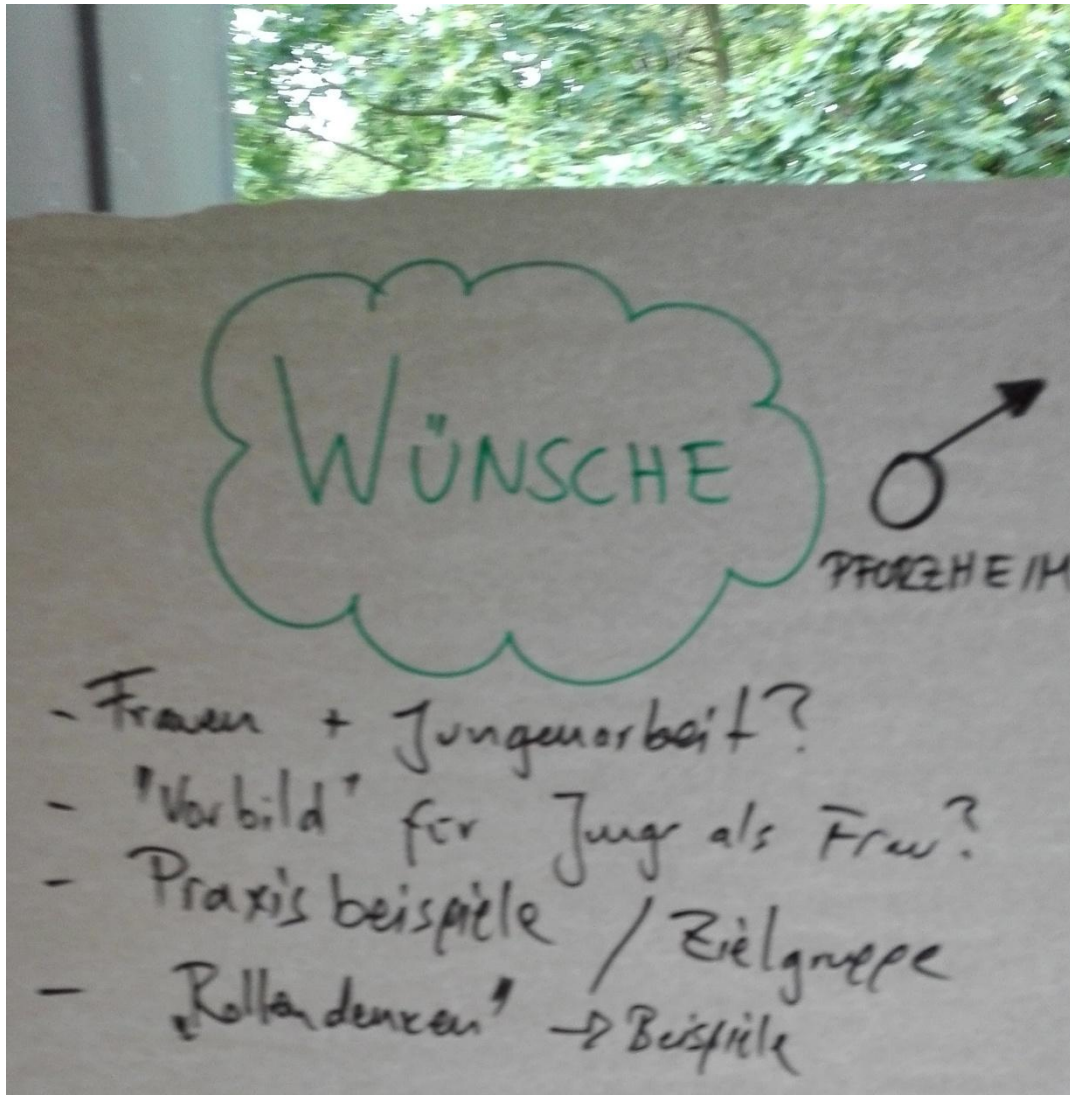 WÜNSCHE
PFORZHEIM
- Frauen + Jungenarbeit?
- "Vorbild" für Jungs als Frau?
- Praxisbeispiele / Zielgruppe
- „Rollendenken" → Beispiele